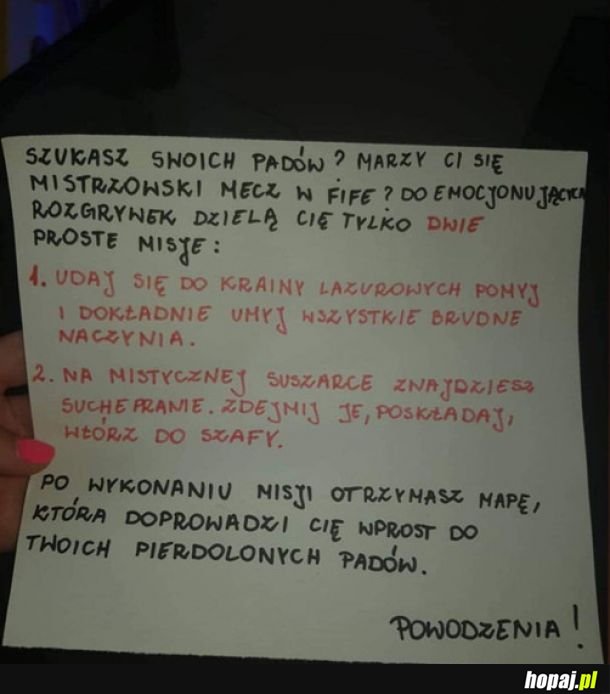 SZUKASZ SWOICH PADÓW? MARZY CI SIĘ
MISTRZOWSKI MECZ W FIFE? DO EMOCJONUJĄCYCH
ROZGRYWEK DZIELĄ CIĘ TYLKO DWIE
PROSTE MISJE:
1. UDAJ SIĘ DO KRAINY LAZUROWYCH POMYJ
I DOKŁADNIE UMYJ WSZYSTKIE BRUDNE
NACZYNIA.
2. NA MISTYCZNEJ SUSZARCE ZNAJDZIESZ
SUCHE PRANIE. ZDEJMIJ JE, POSKŁADAJ,
WŁÓRZ DO SZAFY.
PO WYKONANIU MISJI OTRZYMASZ MAPĘ,
KTÓRA DOPROWADZI CIĘ WPROST DO
TWOICH PIERDOLONYCH PADÓW.
POWODZENIA!
hopaj.pl